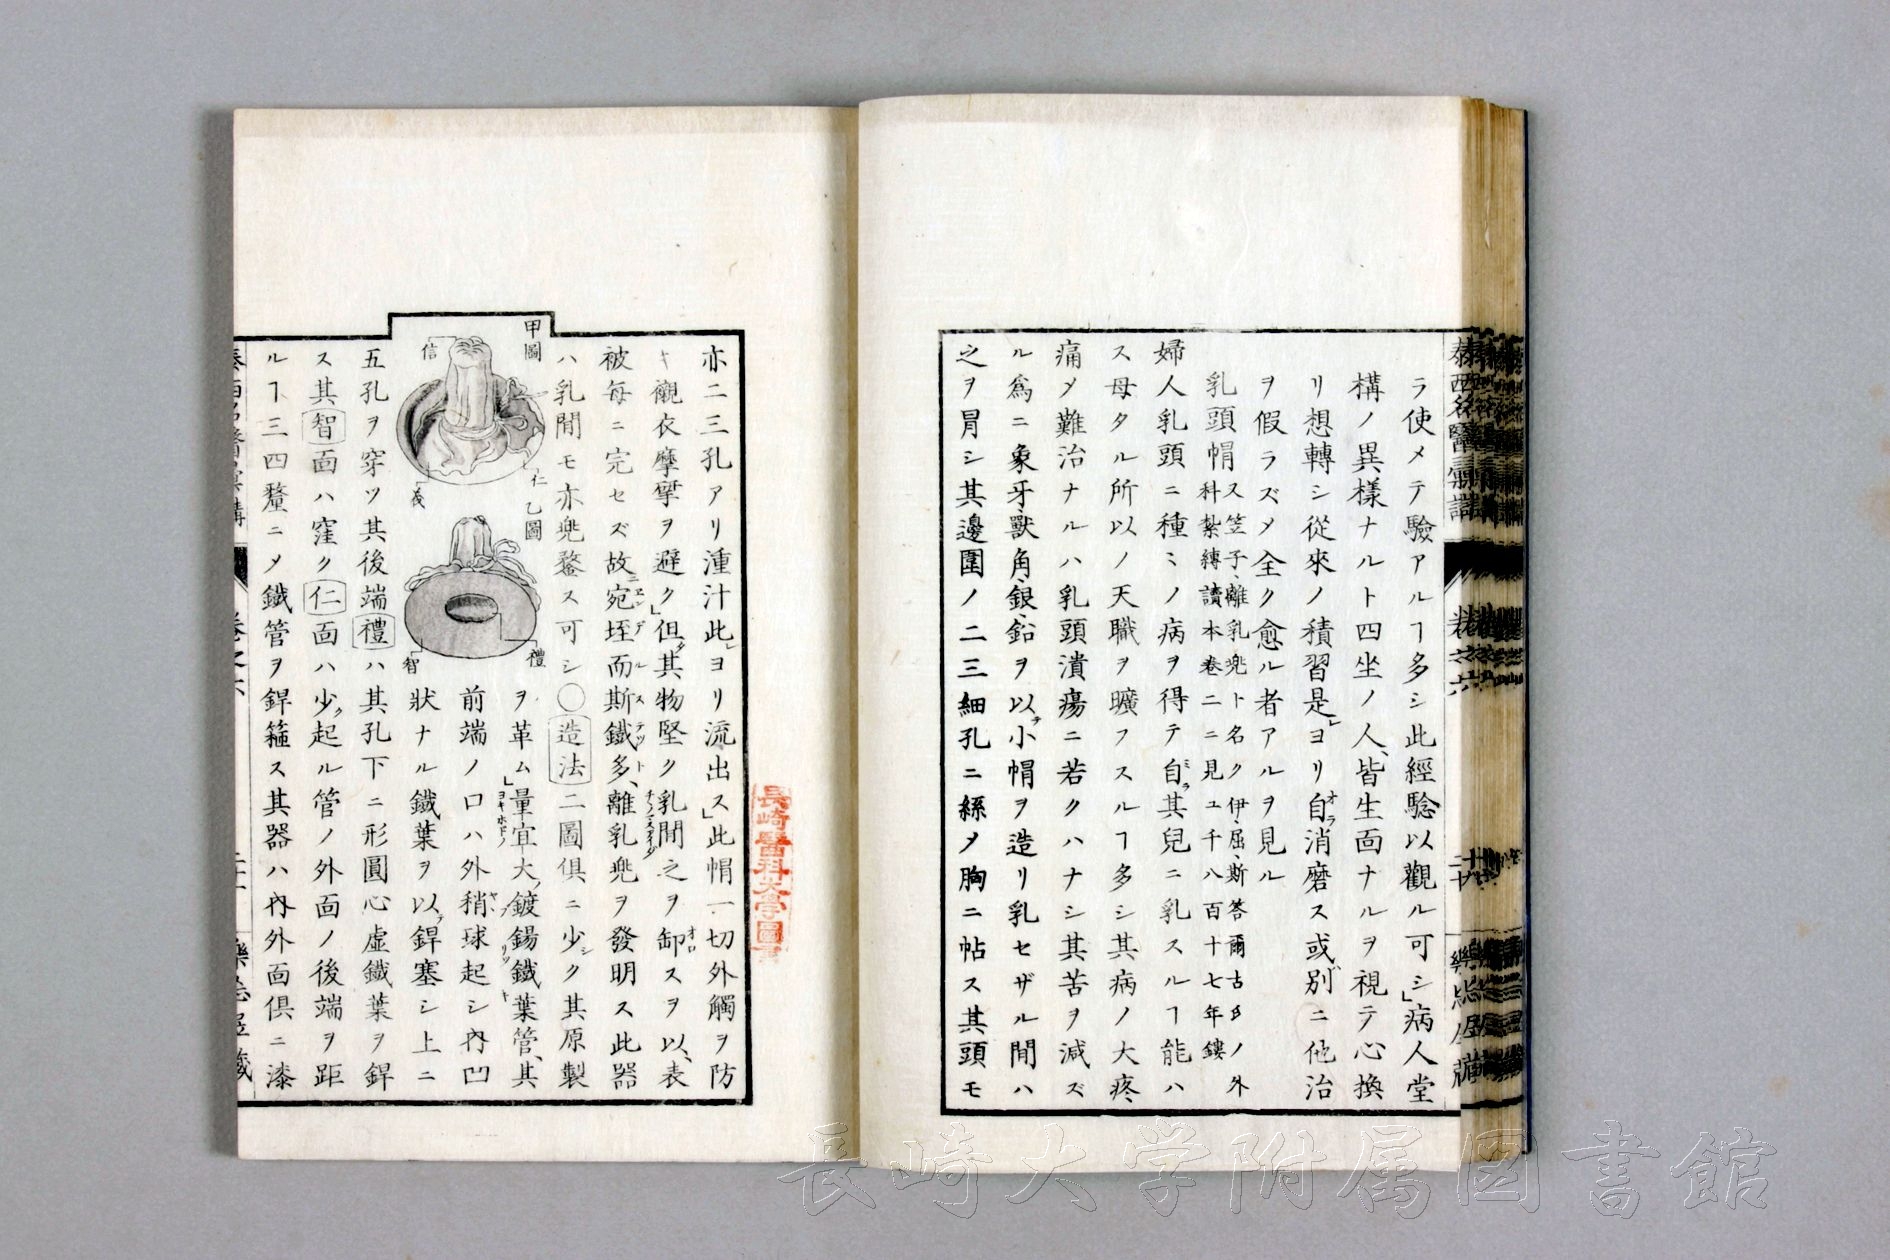 ラ使メテ驗アルヿ多シ此經驗以觀ル可シ」病人堂
構ノ異樣ナルト四坐ノ人、皆生面ナルヲ視テ心換
リ想轉シ從來ノ積習是レヨリ自オラ消磨ス或ハ別ニ他治
ヲ假ラズメ全ク愈ル者アルヲ見ル
乳頭帽又笠子、離乳兜ト名ク伊、屈、斯答爾古ノ外
科紮縛讀本卷二ニ見ユ千八百十七年鏤
婦人乳頭ニ種〻ノ病ヲ得テ自ミラ其兒ニ乳スルヿ能ハ
ス母タル所以ノ天職ヲ曠フスルヿ多シ其病ノ大疼、
痛メ難治ナルハ乳頭潰瘍ニ若クハナシ其苦ヲ減ズ
ル爲ニ象牙、獸角、銀、鉛ヲ以テ小帽ヲ造リ乳セザル間ハ
之ヲ冐シ其邊圍ノ二三細孔ニ絲メ胸ニ帖ス其頭モ
泰西名醫彙講
卷之六
二十
亦二三孔アリ湩汁此レヨリ流出ス」此帽一切外觸ヲ防
キ襯衣摩挲ヲ避ク」但其物堅ク乳間之ヲ卸オロスヲ以、表
被毎ニ完セズ故ニ宛埀エンデル而斯鐵ステット多、離乳兜ヲ發明ス此器
ハ乳間モ亦兜鍪ス可シ〇造法二圖俱ニ少シク其原製
ヲ革ム」量宜ヨキホドノ大ノ鍍鍚鐵葉ブリッキ管、其
前端ノ口ハ外稍ヤヽ球起シ內凹
狀ナル鐵葉ヲ以テ銲塞シ上ニ
五孔ヲ穿ツ其後端禮ハ其孔下ニ形圓心虛鐵葉ヲ銲
ス其智面ハ窪ク仁面ハ少ク起ル管ノ外面ノ後端ヲ距
ルヿ三四釐ニメ鐵管ヲ銲箍ス其器ハ內外面俱ニ漆
甲圖
信
仁
義
乙圖
禮
智
長崎醫科大學圖書
長崎大学附属図書館